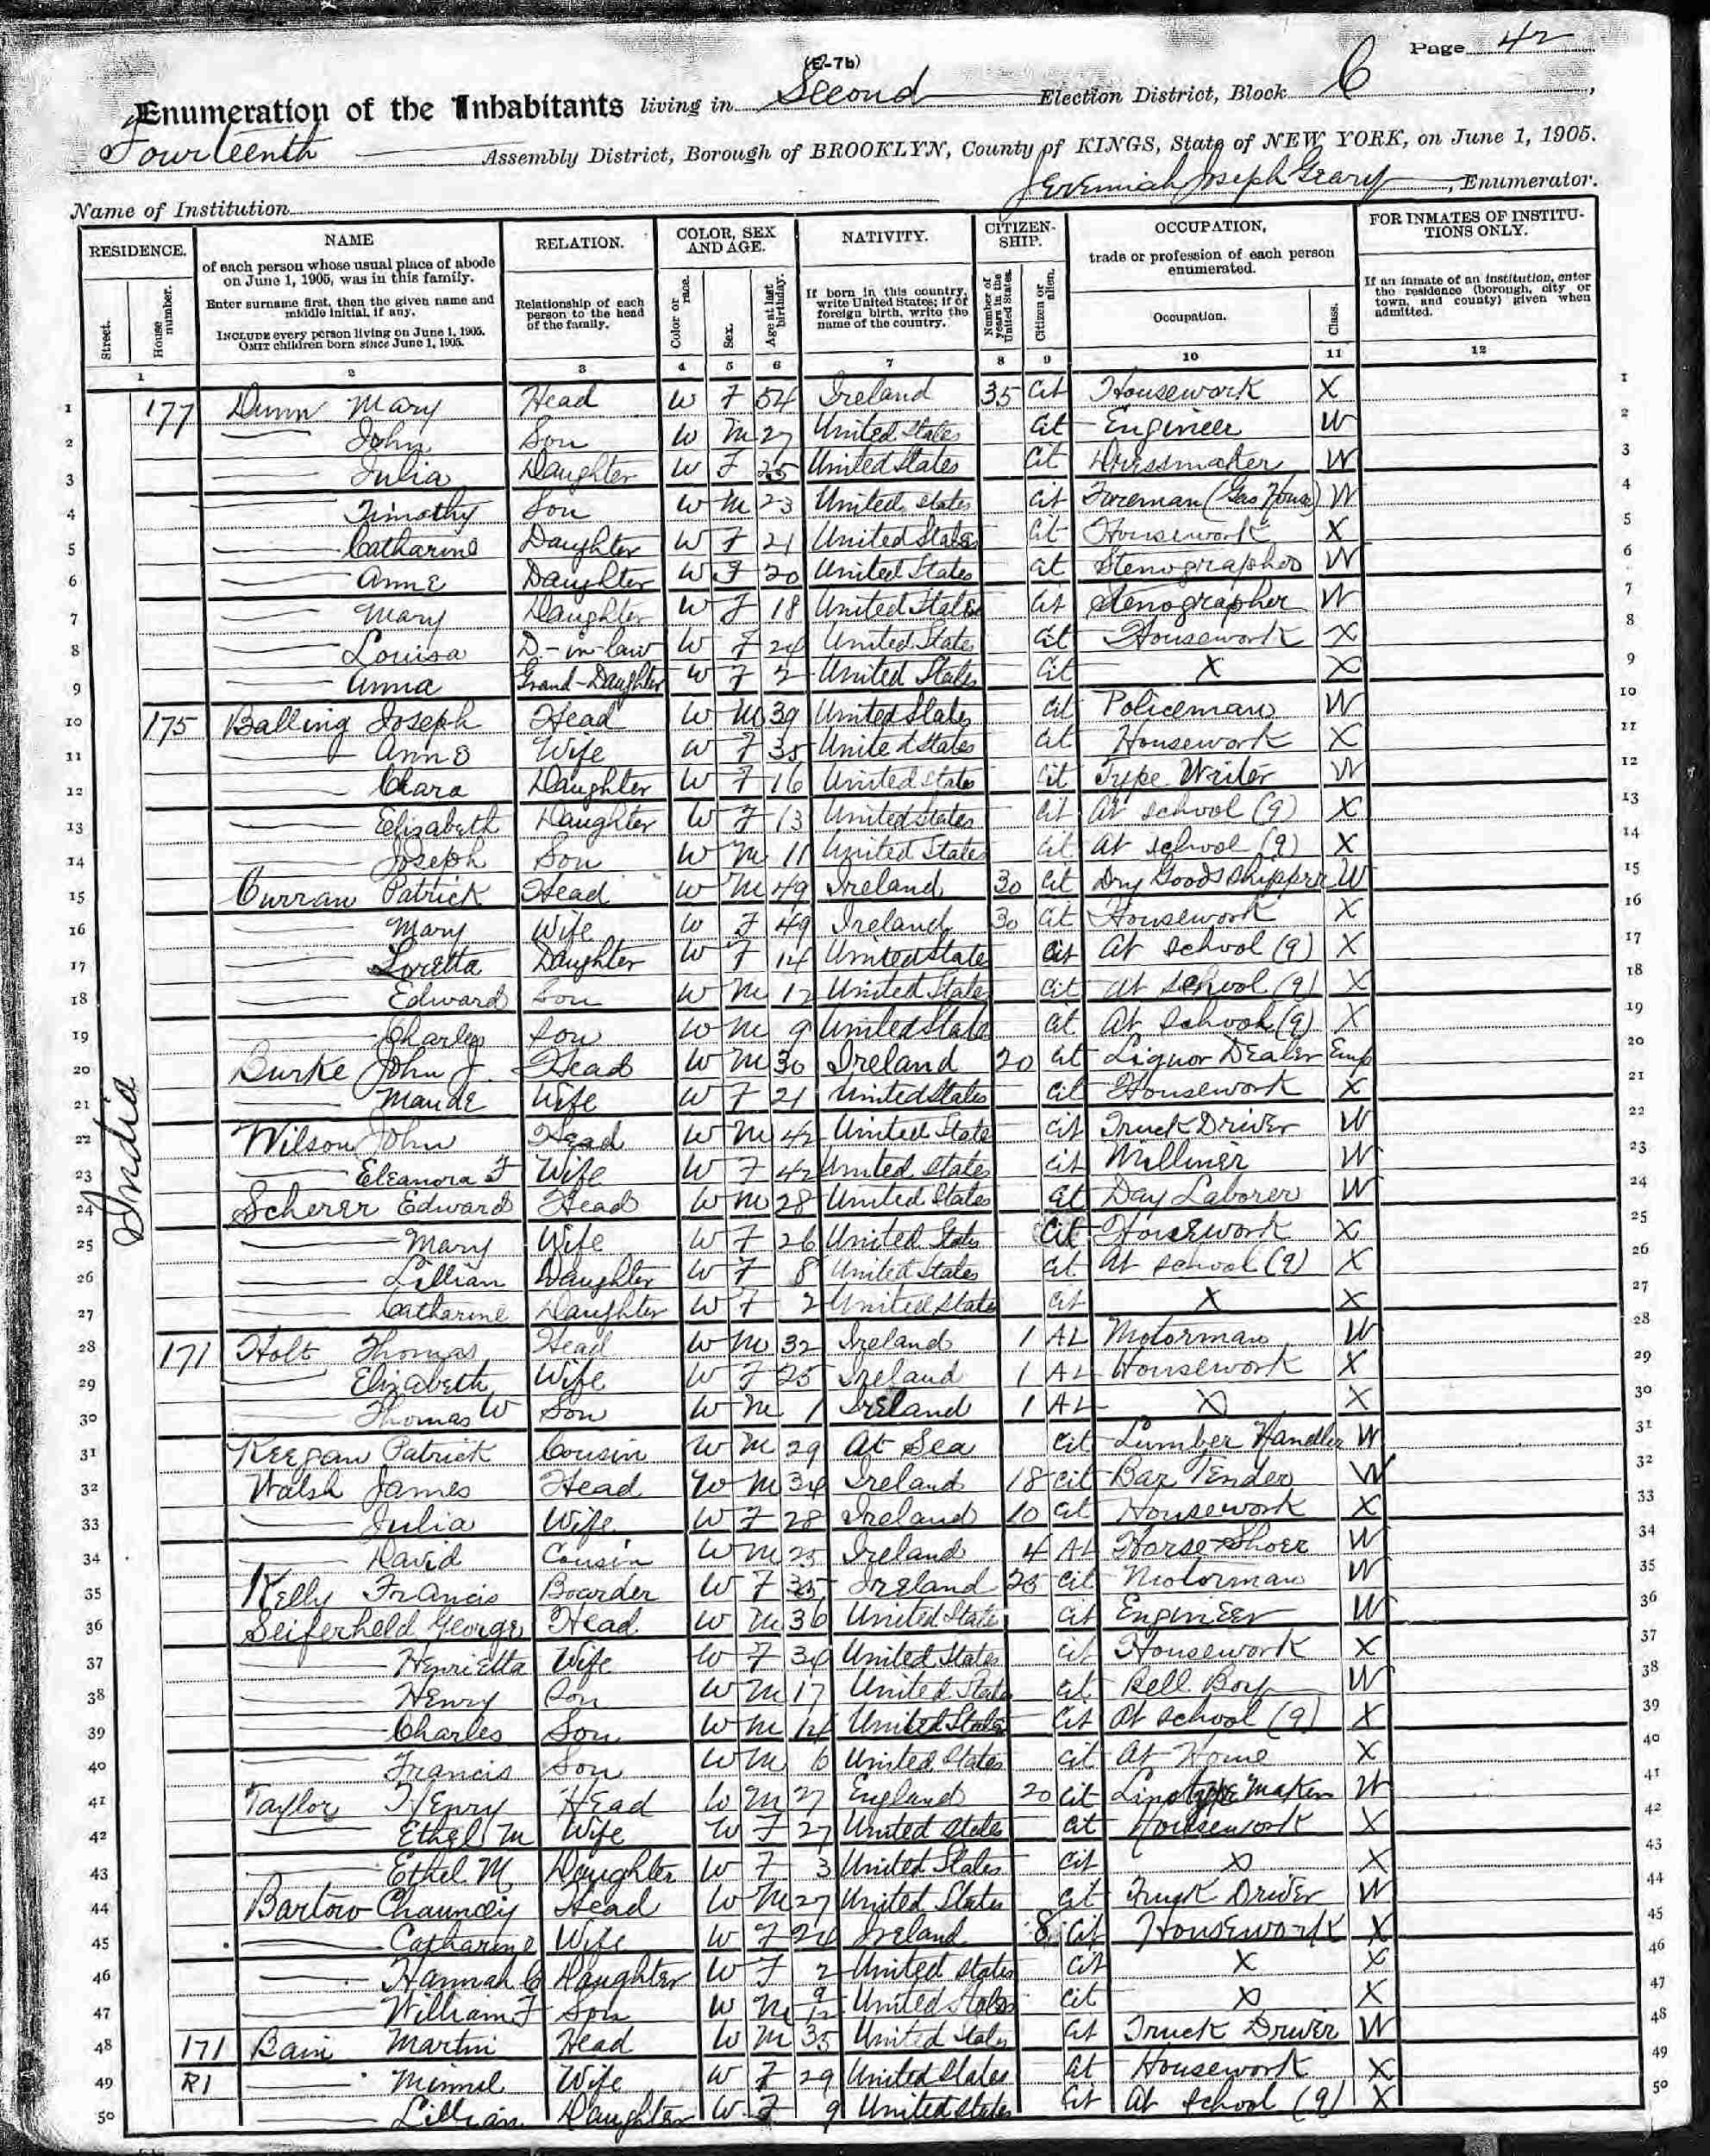 Page 42
(E-7b)
Enumeration of the Inhabitants living in Second Election District, Block 6,
Fourteenth Assembly District, Borough of BROOKLYN, County of KINGS, State of NEW YORK, on June 1, 1905.
Jeremiah Joseph Geary, Enumerator.
Name of Institution
RESIDENCE. NAME RELATION. COLOR, SEX AND AGE. NATIVITY. CITIZENSHIP. OCCUPATION, FOR INMATES OF INSTITUTIONS ONLY.
Street. House number.
of each person whose usual place of abode on June 1, 1905, was in this family.
Enter surname first, then the given name and middle initial, if any.
INCLUDE every person living on June 1, 1905.
OMIT children born since June 1, 1905.
Relationship of each person to the head of the family.
Color or race. Sex. Age at last birthday.
If born in this country, write United States; if of foreign birth, write the name of the country.
Number of years in the United States. Citizen or alien.
trade or profession of each person enumerated.
Occupation. Class.
If an inmate of an institution, enter the residence (borough, city or town, and county) given when admitted.
1 2 3 4 5 6 7 8 9 10 11 12
India
1 177 Dunn Mary Head W F 54 Ireland 35 Cit Housework X 1
2 John Son W M 27 United States Cit Engineer W 2
3 Julia Daughter W F 25 United States Cit Dressmaker W 3
4 Timothy Son W M 23 United States Cit Foreman (Gas House) W 4
5 Catharine Daughter W F 21 United States Cit Housework X 5
6 Anne Daughter W F 20 United States Cit Stenographer W 6
7 Mary Daughter W F 18 United States Cit Stenographer W 7
8 Louisa D.-in-law W F 24 United States Cit Housework X 8
9 Anna Grand-Daughter W F 2 United States Cit X X 9
10 175 Balling Joseph Head W M 39 United States Cit Policeman W 10
11 Anna Wife W F 35 United States Cit Housework X 11
12 Clara Daughter W F 16 United States Cit Type Writer W 12
13 Elizabeth Daughter W F 13 United States Cit At school (9) X 13
14 Joseph Son W M 11 United States Cit At school (9) X 14
15 Curran Patrick Head W M 49 Ireland 30 Cit Dry Goods Shipper W 15
16 Mary Wife W F 49 Ireland 30 Cit Housework X 16
17 Loretta Daughter W F 14 United State Cit At school (9) X 17
18 Edward Son W M 12 United States Cit At school (9) X 18
19 Charles Son W M 9 United States Cit At school (9) X 19
20 Burke John J. Head W M 30 Ireland 20 Cit Liquor Dealer Emp 20
21 Maude Wife W F 21 United States Cit Housework X 21
22 Wilson John Head W M 42 United State Cit Truck Driver W 22
23 Eleanora F Wife W F 42 United States Cit Milliner W 23
24 Scherer Edward Head W M 28 United States Cit Day Laborer W 24
25 Mary Wife W F 26 United States Cit Housework X 25
26 Lillian Daughter W F 8 United States Cit At school (9) X 26
27 Catharine Daughter W F 2 United States Cit X X 27
28 171 Holt Thomas Head W M 32 Ireland 1 AL Motorman W 28
29 Elizabeth Wife W F 25 Ireland 1 AL Housework X 29
30 Thomas W Son W M 1 Ireland 1 AL X X 30
31 Keegan Patrick Cousin W M 29 At Sea Cit Lumber Handler W 31
32 Walsh James Head W M 34 Ireland 18 Cit Bar Tender W 32
33 Julia Wife W F 28 Ireland 10 Cit Housework X 33
34 David Cousin W M 25 Ireland 4 AL Horse Shoer W 34
35 Kelly Francis Boarder W F 35 Ireland 25 Cit Motorman W 35
36 Seiferheld George Head W M 36 United States Cit Engineer W 36
37 Henrietta Wife W F 34 United States Cit Housework X 37
38 Henry Son W M 17 United States Cit Bell Boy W 38
39 Charles Son W M 14 United States Cit At school (9) X 39
40 Francis Son W M 6 United States Cit At Home X 40
41 Taylor Henry Head W M 27 England 20 Cit Linotype Maker W 41
42 Ethel M Wife W F 27 United States Cit Housework X 42
43 Ethel M. Daughter W F 3 United States Cit X X 43
44 Bartow Chauncey Head W M 27 United States Cit Truck Driver W 44
45 Catharine Wife W F 24 Ireland 8 Cit Housework X 45
46 Hannah C Daughter W F 2 United States Cit X X 46
47 William F Son W M 9/12 United States Cit X X 47
48 171 Bain Martin Head W M 35 United States Cit Truck Driver W 48
49 R1 Minnie Wife W F 29 United States Cit Housework X 49
50 Lillian Daughter W F 9 United States Cit At school (9) X 50